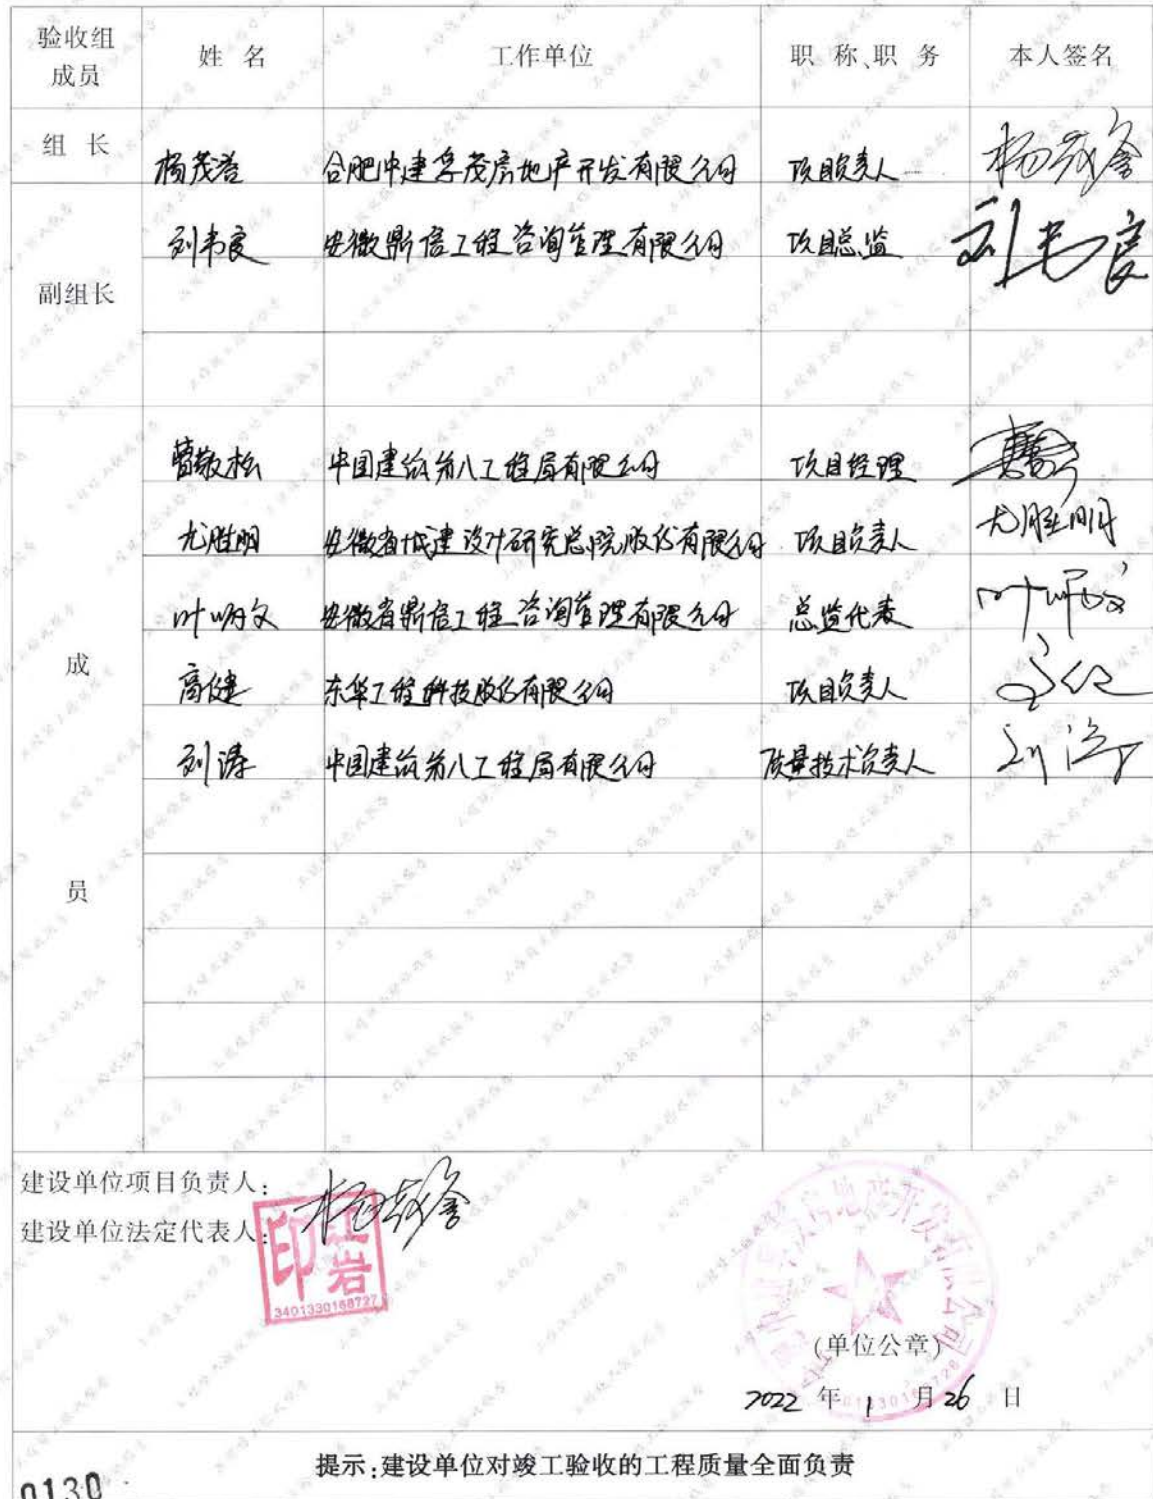 验收组
成员
姓 名
工作单位
职 称、职 务
本人签名
组 长
杨茂岩 合肥中建孚茂房地产开发有限公司 项目负责人
刘韦良 安徽鼎信工程咨询管理有限公司 项目总监 刘韦良
副组长
曹敬松 中国建筑第八工程局有限公司 项目经理
尤胜明 安徽省城建设计研究总院股份有限公司 项目负责人 尤胜明
叶炳文 安徽省鼎信工程咨询管理有限公司 总监代表
高健 东华工程科技股份有限公司 项目负责人
刘涛 中国建筑第八工程局有限公司 质量技术负责人 刘涛
成
员
建设单位项目负责人:
建设单位法定代表人:
印 王岩
3401330168727
房地产开发有限公司
(单位公章)
2022 年 1 月 26 日
提示:建设单位对竣工验收的工程质量全面负责
0130